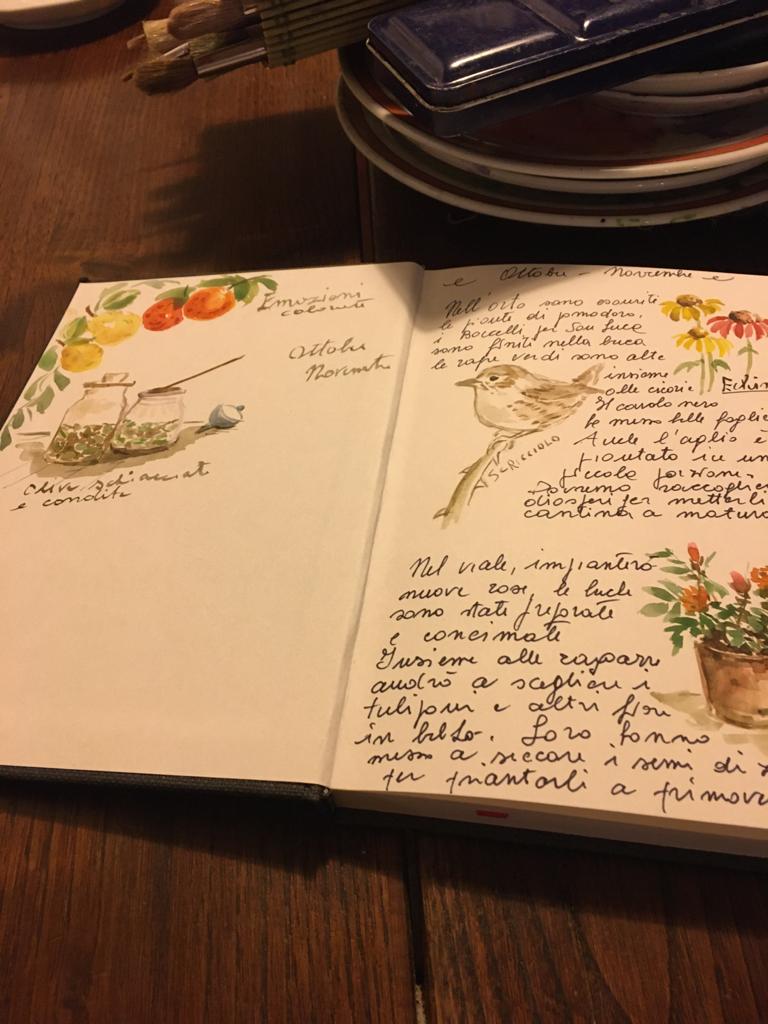 Emozioni
colorate
Ottobre
Novembre
Olive schiacciate
e condite
e Ottobre - Novembre e
Nell'orto sono esauriti
le piante di pomodoro,
i Baccelli per San Luca
sono finiti nella buca
le rape verdi sono alte
insieme
alle cicorie
Echin
Il cavolo nero
ha messo belle foglie
Anche l'aglio è
piantato in un
piccola porzione.
raccoglie
diosperi per metterli
cantina a matura
SCRICCIOLO
Nel viale, impianterò
nuove rose, le buche
sono state preparate
e concimate
Insieme alle ragazze
andrò a scegliere i
tulipani e altri fiori
in bulbo. Loro hanno
messo a seccare i semi di
per piantarli a primave